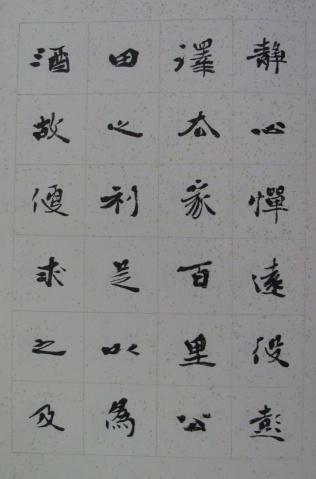 静心憚遠役彭
澤去家百里公
田之利足以為
酒故便求之及